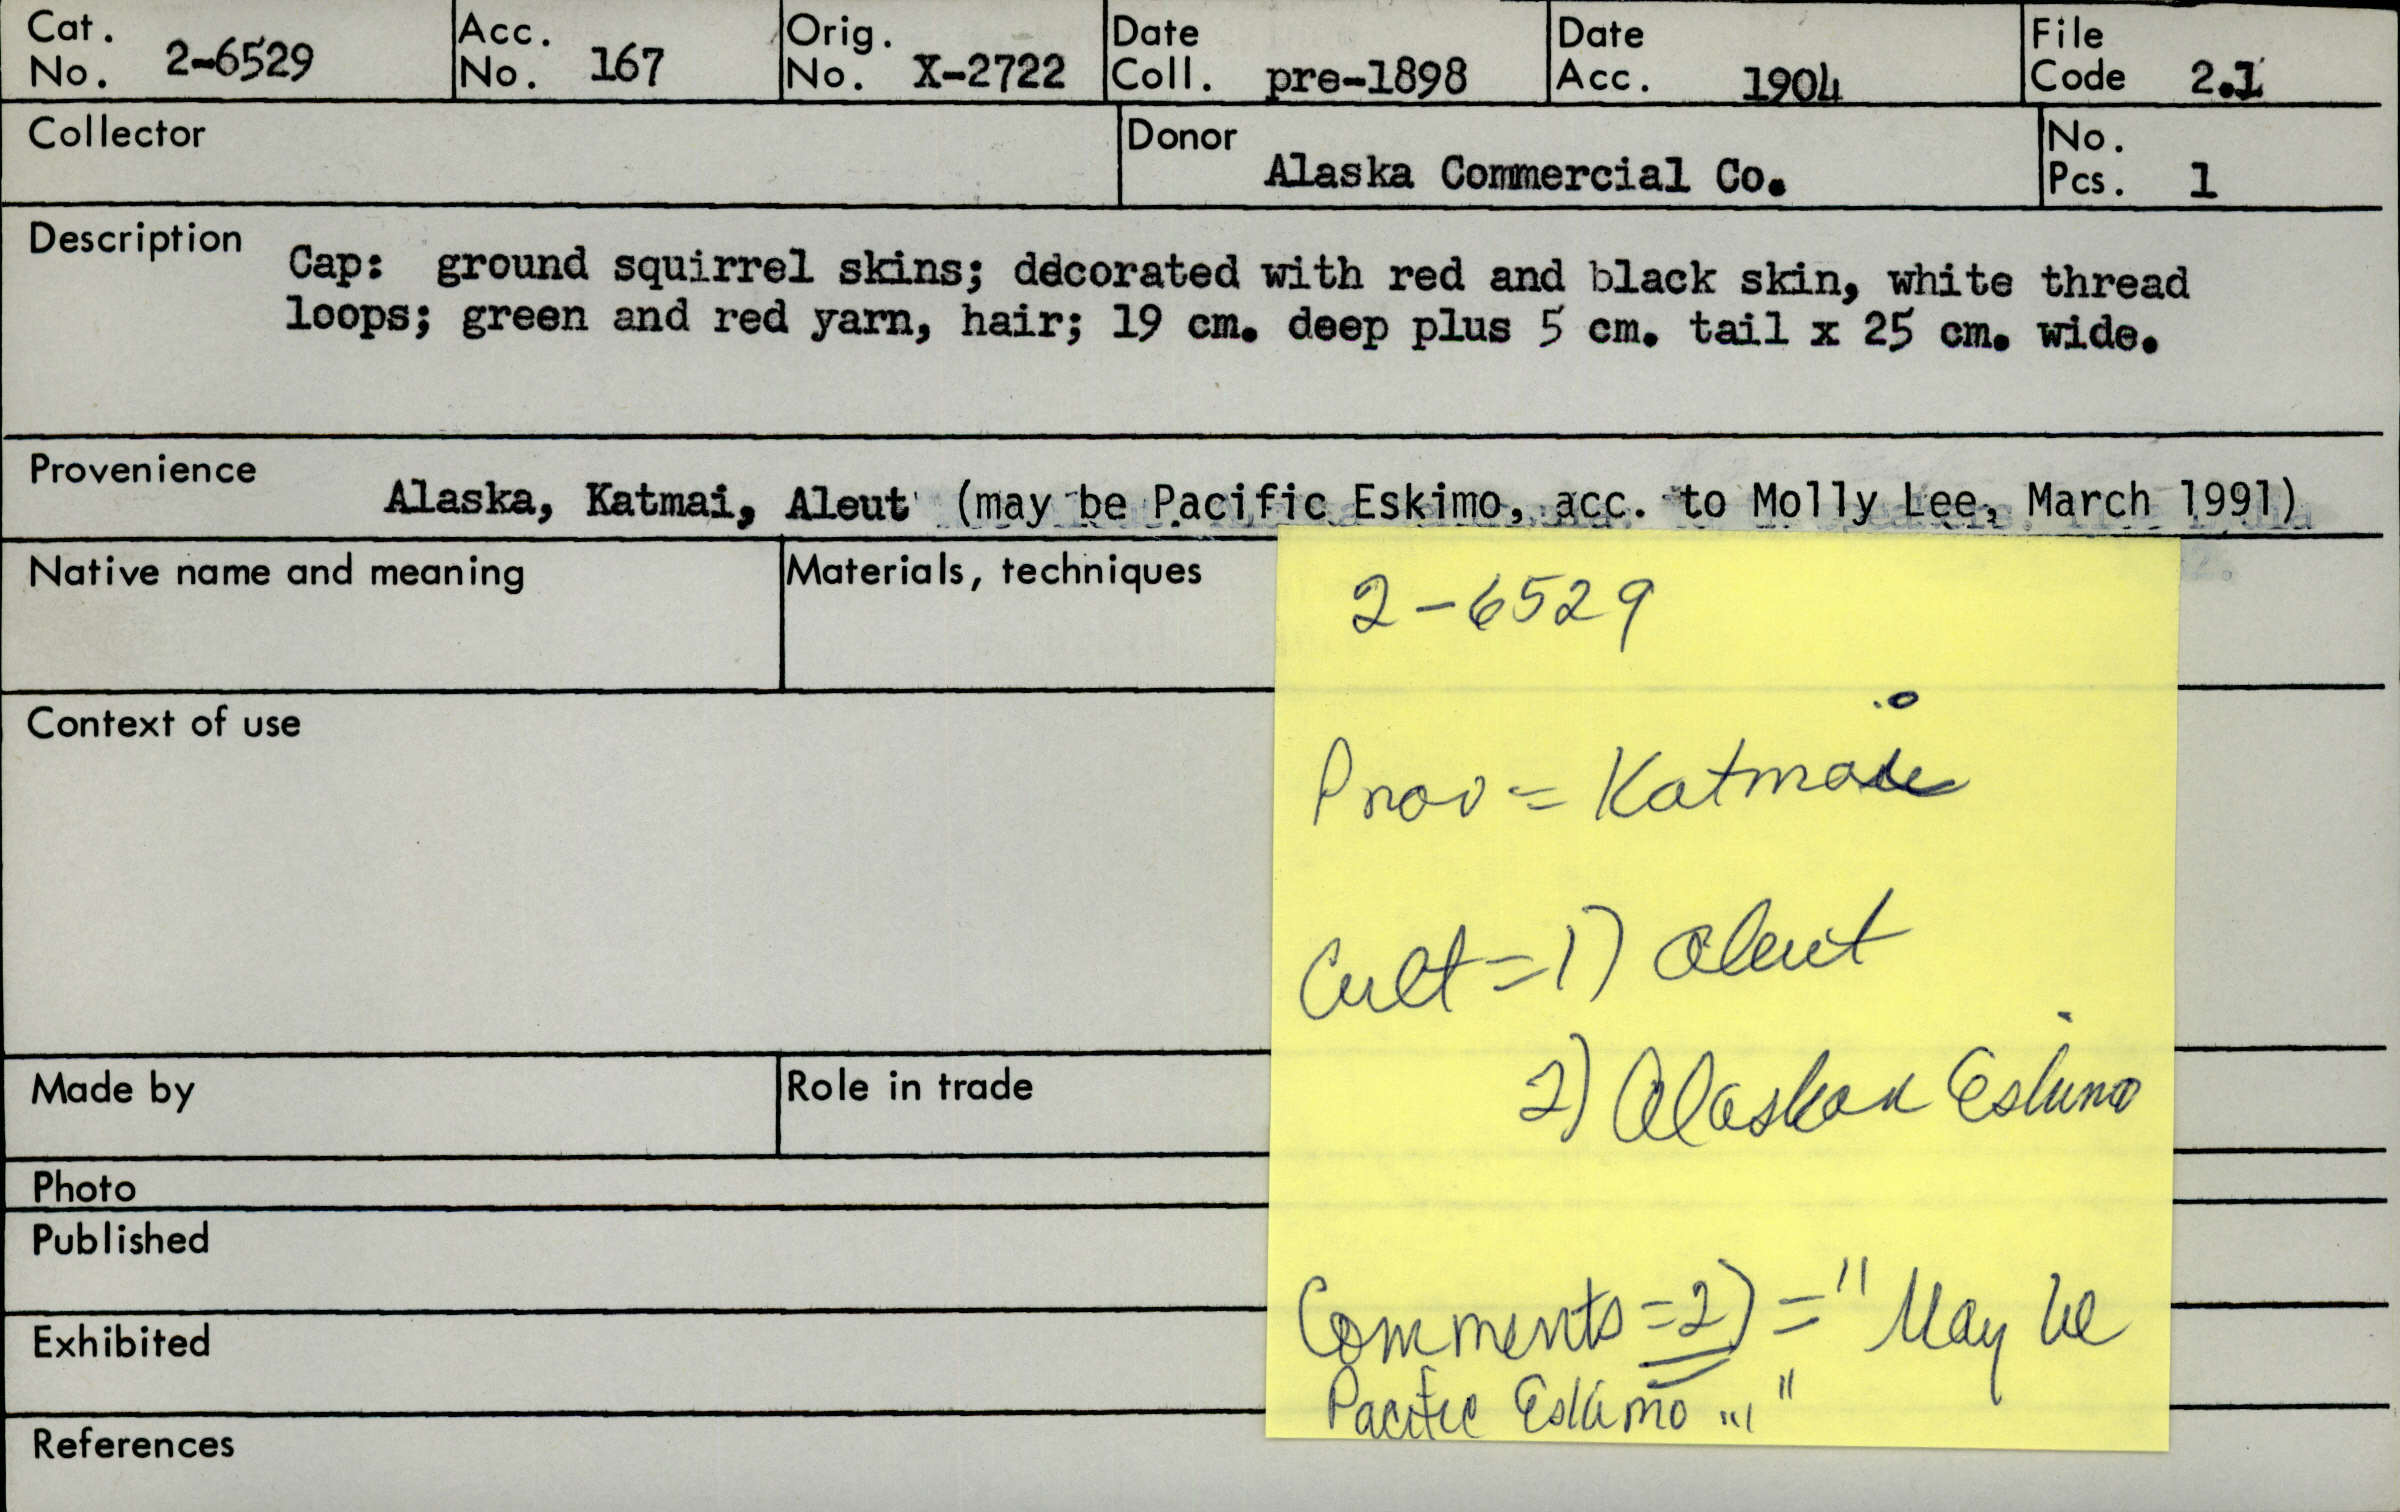 Cat. No. 2-6529
Acc. No. 167
Orig. No. X-2722
Date Coll. pre-1898
Date Acc. 1904
File Code 2.1
Collector
Donor Alaska Commercial Co.
No. Pcs. 1
Description
Cap: ground squirrel skins; decorated with red and black skin, white thread
loops; green and red yarn, hair; 19 cm. deep plus 5 cm. tail x 25 cm. wide.
Provenience
Alaska, Katmai, Aleut (may be Pacific Eskimo, acc. to Molly Lee, March 1991)
Native name and meaning
Materials, techniques
2-6529
Prov = Katmai
Cult = 1) Aleut
2) Alaskan Eskimo
Comments = 2) = "May be
Pacific Eskimo ..."
Context of use
Made by
Role in trade
Photo
Published
Exhibited
References